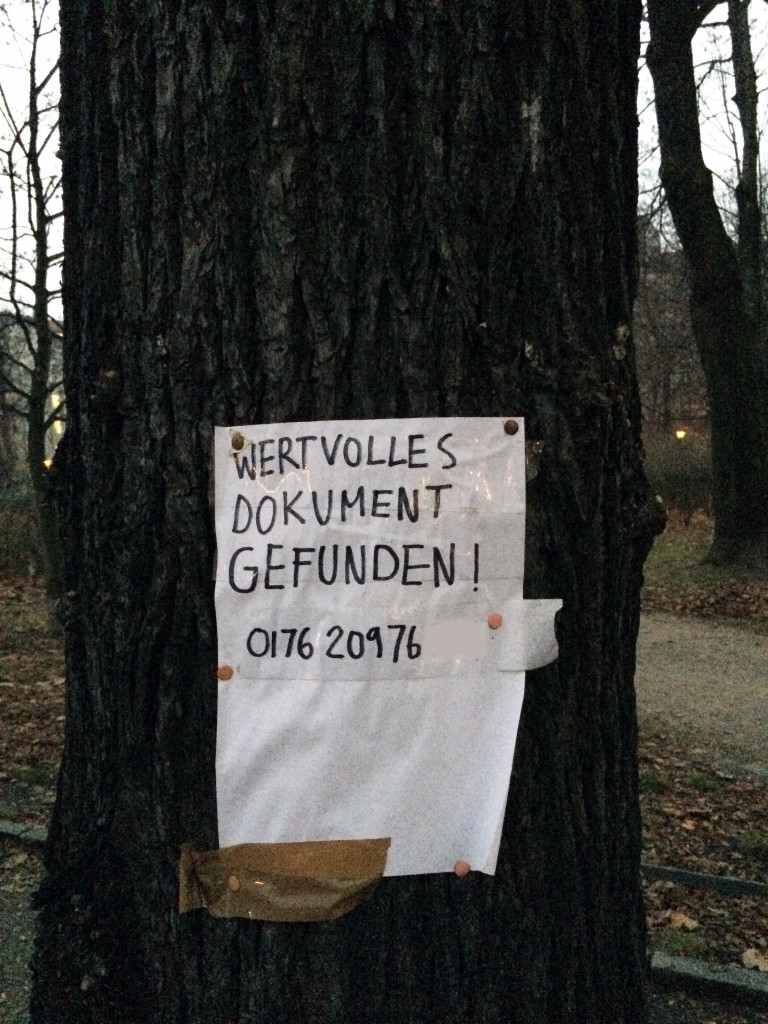 WERTVOLLES
DOKUMENT
GEFUNDEN!
0176 20976